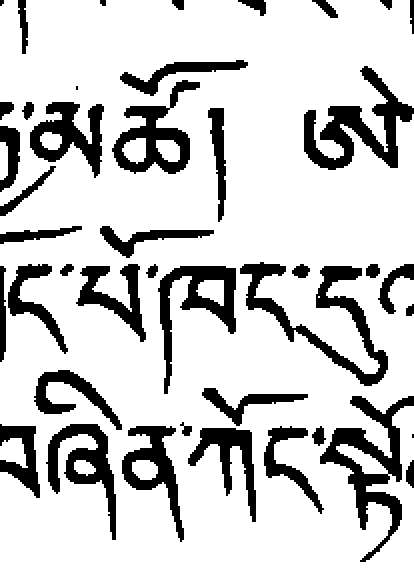 མཚོ། ཨེ
ང་པོ་ཁང་དུ་
བཞིན་ཀོང་སྟོ